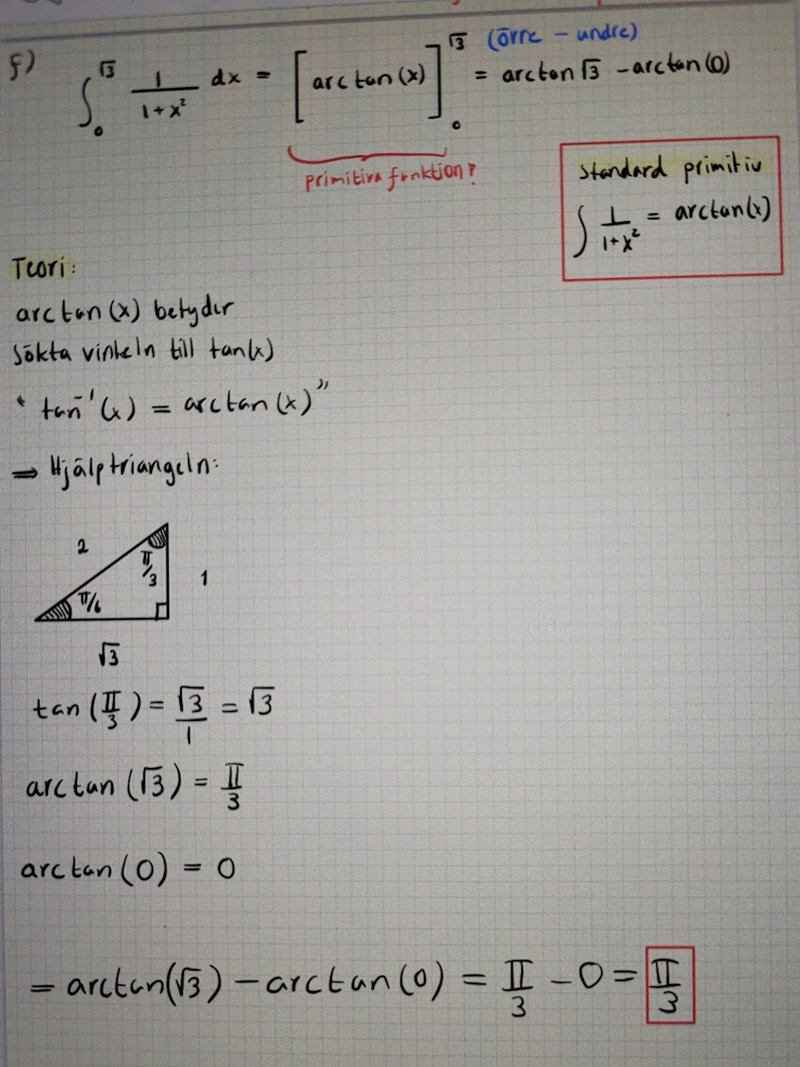 f)
∫₀^√3 1/(1+x²) dx = [arctan(x)]₀^√3 = arctan√3 - arctan(0)
(övre - undre)
primitiva funktion?
Standard primitiv
∫ 1/(1+x²) = arctan(x)
Teori:
arctan(x) betyder
Sökta vinkeln till tan(x)
"tan⁻¹(x) = arctan(x)"
⇒ Hjälptriangeln:
2
π/3
1
π/6
√3
tan(π/3) = √3/1 = √3
arctan(√3) = π/3
arctan(0) = 0
= arctan(√3) - arctan(0) = π/3 - 0 = π/3